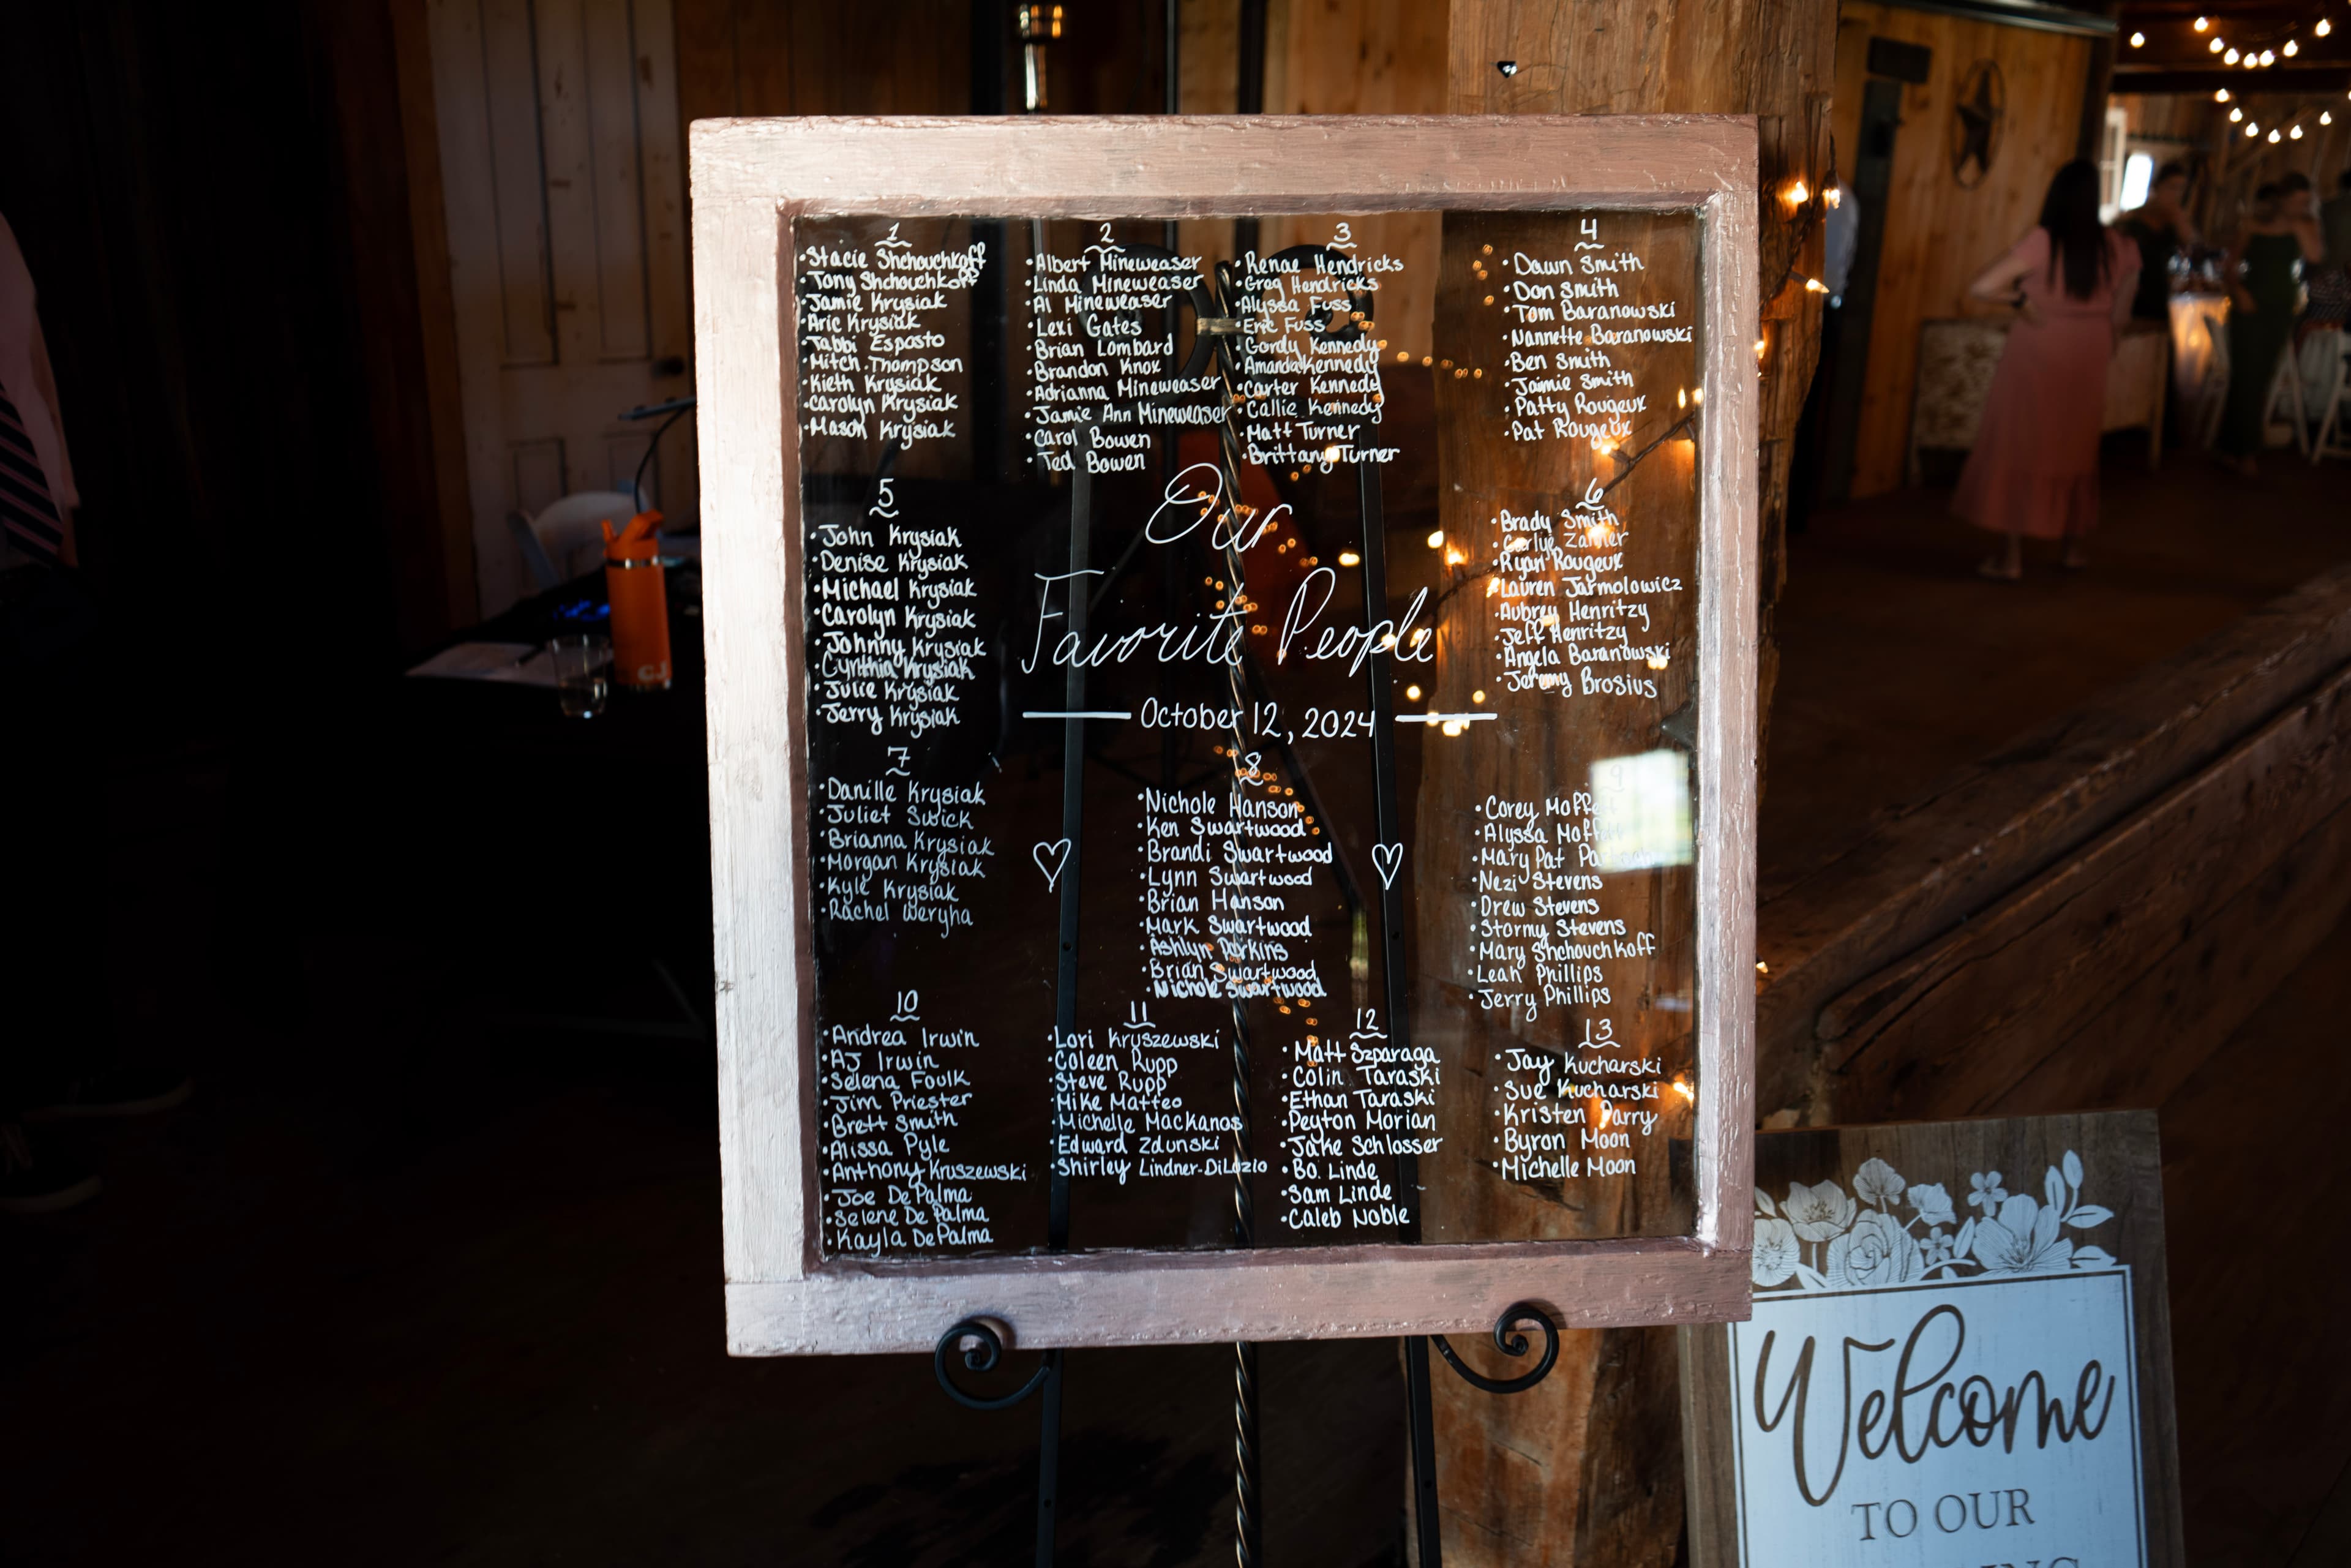 1
Stacie Shchouchkoff
Tony Shchouchkoff
Jamie Krysiak
Aric Krysiak
Tabbi Esposto
Mitch Thompson
Kieth Krysiak
Carolyn Krysiak
Mason Krysiak
2
Albert Mineweaser
Linda Mineweaser
Al Mineweaser
Lexi Gates
Brian Lombard
Brandon Knox
Adrianna Mineweaser
Jamie Ann Mineweaser
Carol Bowen
Ted Bowen
3
Renae Hendricks
Greg Hendricks
Alyssa Fuss
Eric Fuss
Gordy Kennedy
Amanda Kennedy
Carter Kennedy
Callie Kennedy
Matt Turner
Brittany Turner
4
Dawn Smith
Don Smith
Tom Baranowski
Nannette Baranowski
Ben Smith
Jaimie Smith
Patty Rougeux
Pat Rougeux
Our
Favorite People
October 12, 2024
5
John Krysiak
Denise Krysiak
Michael Krysiak
Carolyn Krysiak
Johnny Krysiak
Cynthia Krysiak
Julie Krysiak
Jerry Krysiak
6
Brady Smith
Carlye Zanier
Ryan Rougeux
Lauren Jarmolowicz
Aubrey Henritzy
Jeff Henritzy
Angela Baranowski
Jeremy Brosius
7
Danille Krysiak
Juliet Swick
Brianna Krysiak
Morgan Krysiak
Kyle Krysiak
Rachel Weryha
8
Nichole Hanson
Ken Swartwood
Brandi Swartwood
Lynn Swartwood
Brian Hanson
Mark Swartwood
Ashlyn Parkins
Brian Swartwood
Nichole Swartwood
9
Corey
Alyssa
Mary Pat
Nezi Stevens
Drew Stevens
Stormy Stevens
Mary Shchouchkoff
Leah Phillips
Jerry Phillips
10
Andrea Irwin
AJ Irwin
Selena Foulk
Jim Priester
Brett Smith
Alissa Pyle
Anthony Kruszewski
Joe DePalma
Selene DePalma
Kayla DePalma
11
Lori Kruszewski
Coleen Rupp
Steve Rupp
Mike Matteo
Michelle Mackanos
Edward Zdunski
Shirley Lindner-DiLozio
12
Matt Szparaga
Colin Taraski
Ethan Taraski
Peyton Morian
Jake Schlosser
Bo. Linde
Sam Linde
Caleb Noble
13
Jay Kucharski
Sue Kucharski
Kristen Parry
Byron Moon
Michelle Moon
Welcome
TO OUR